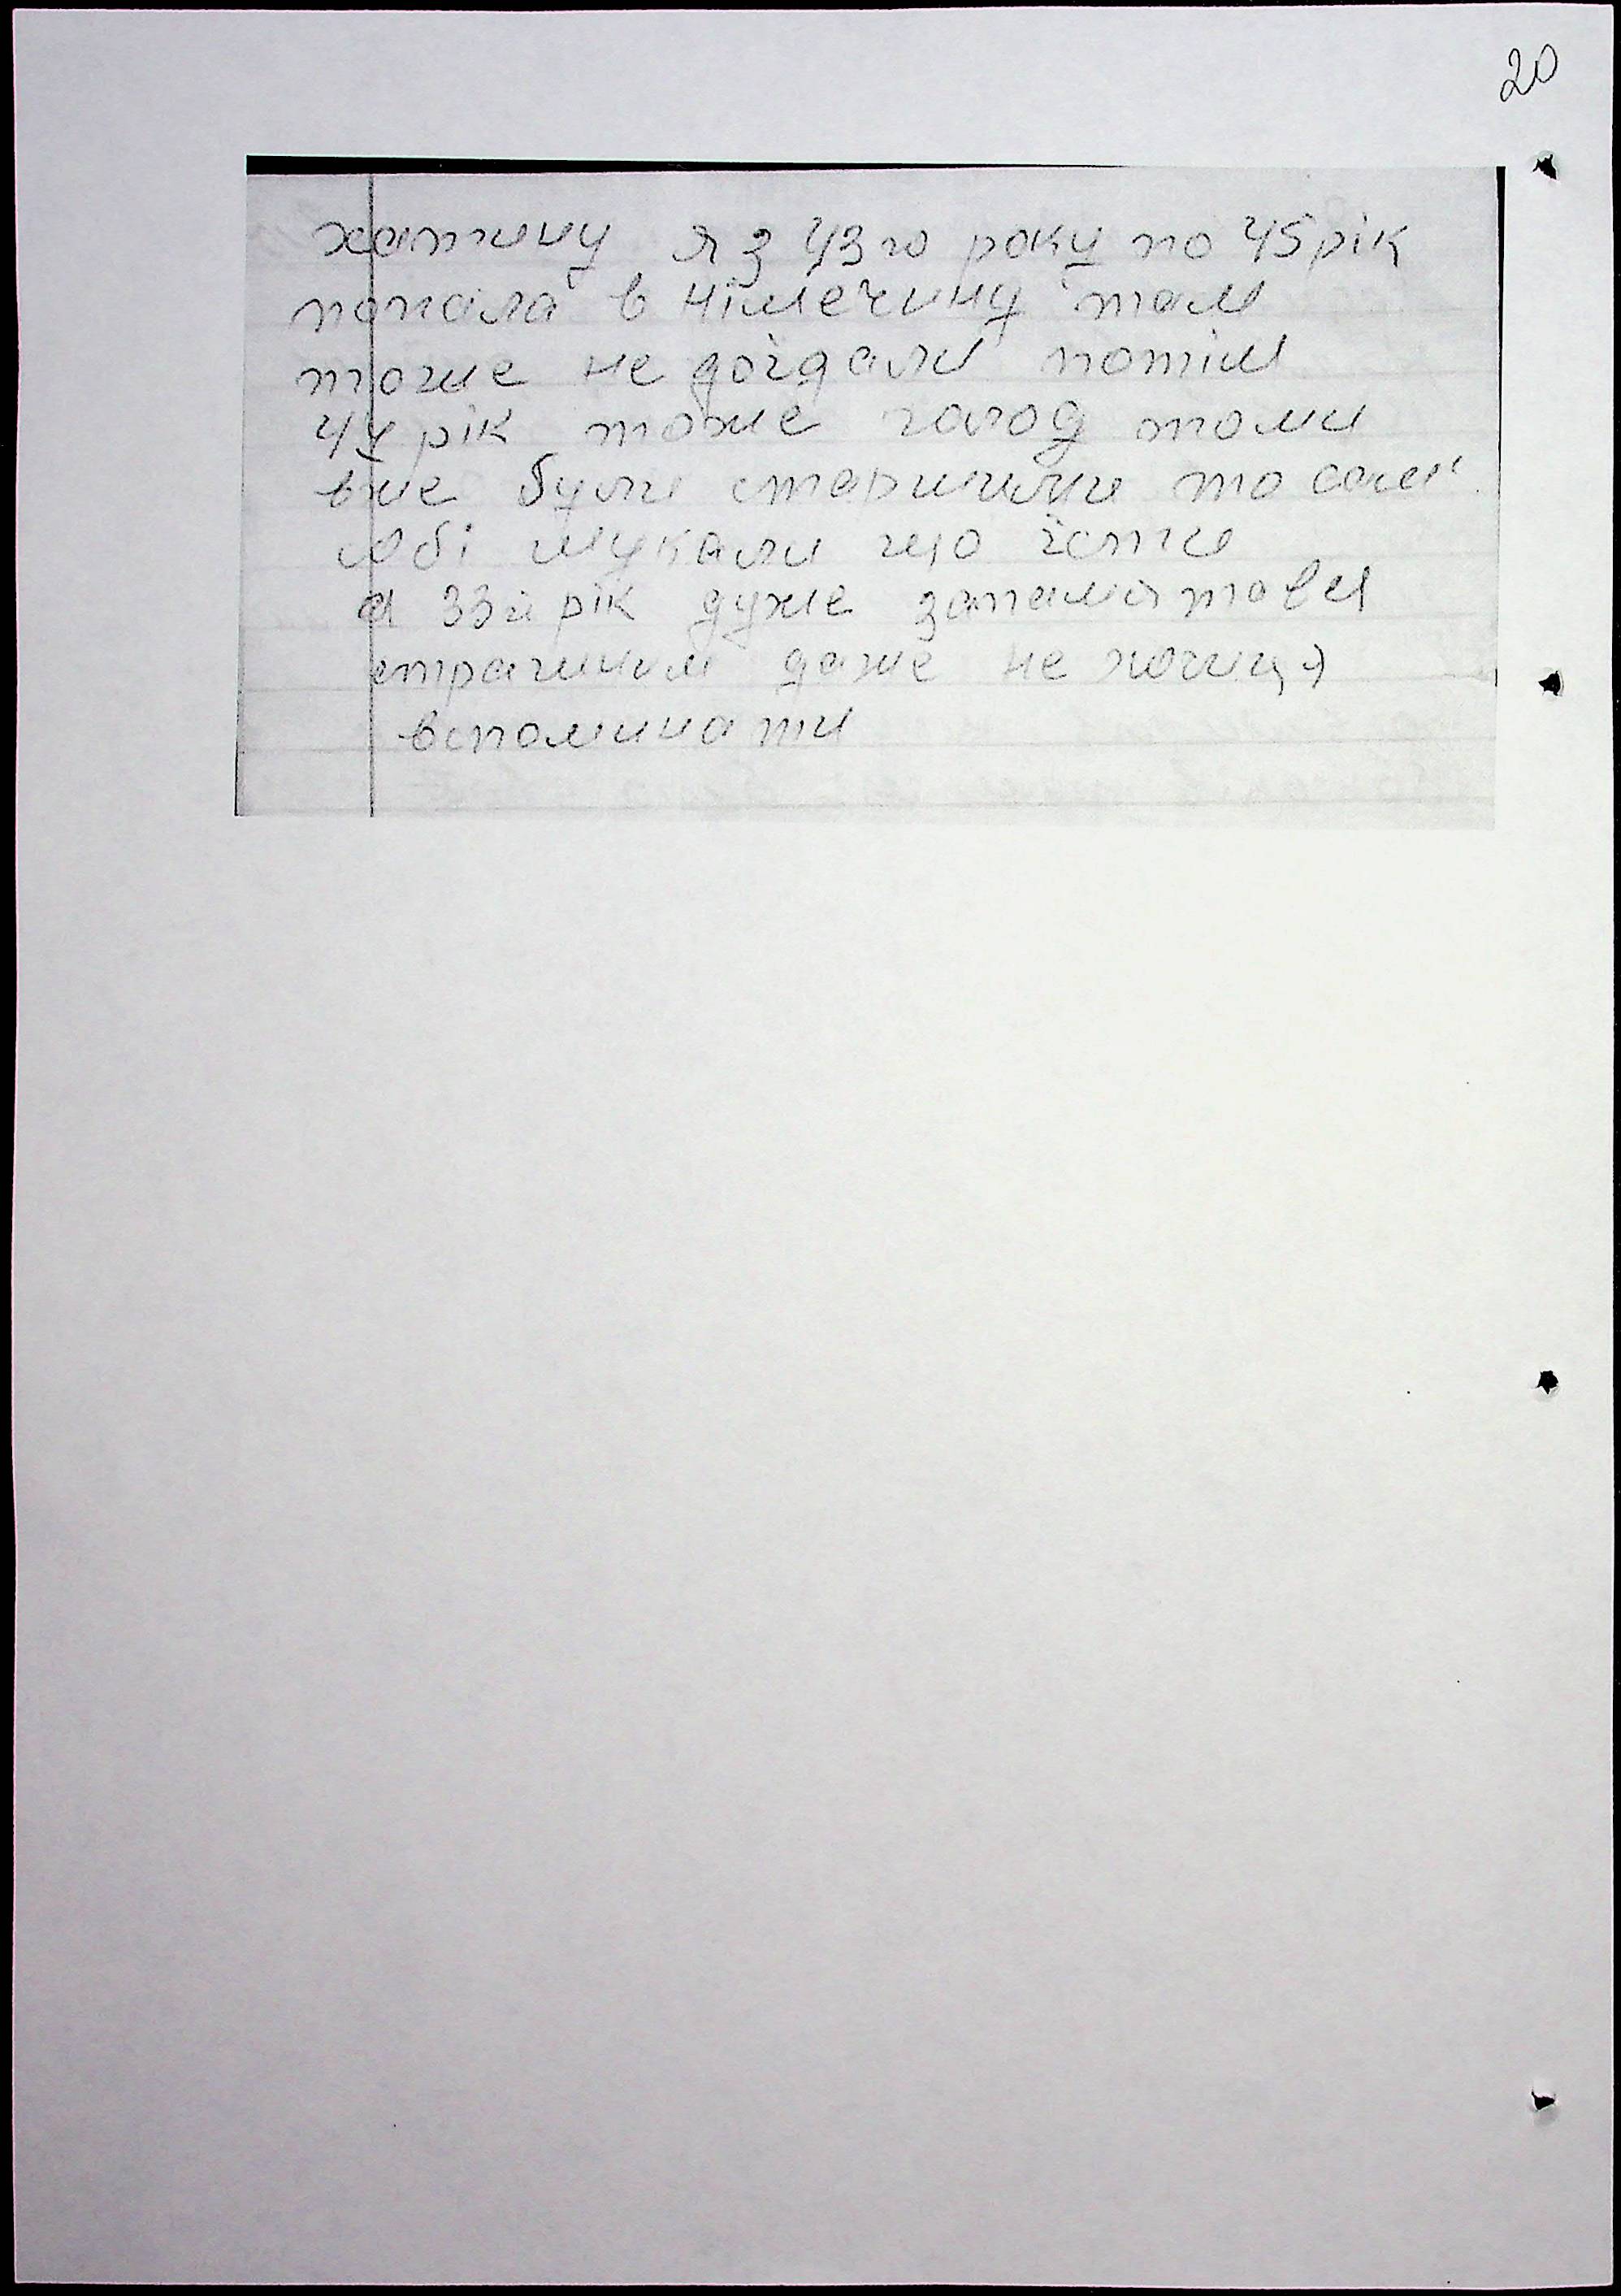 20
хатину я з 43 го року по 45 рік
попала в німечину там
тоже не доїдали потім
47 рік тоже голод толи
вже були старишими то самі
собі шукали що їсти
а 33й рік дуже запамятавсь
страшним даже не хочиця
вспоминати